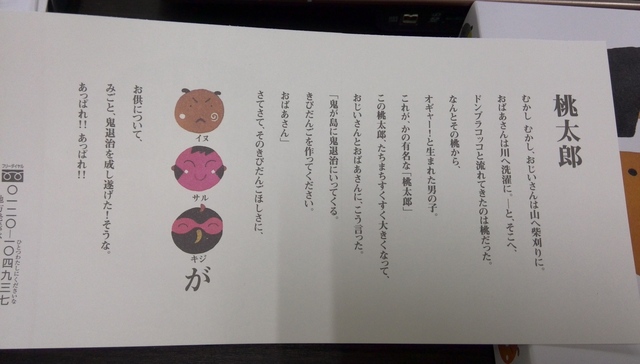 桃太郎
むかし むかし、おじいさんは山へ柴刈りに。
おばあさんは川へ洗濯に。―と、そこへ、
ドンブラコッコと流れてきたのは桃だった。
なんとその桃から、
オギャー!と生まれた男の子。
これが、かの有名な「桃太郎」
この桃太郎、たちまちすくすく大きくなって、
おじいさんとおばあさんに、こう言った。
「鬼が島に鬼退治にいってくる。
きびだんごを作ってください。
おばあさん」
さてさて、そのきびだんごほしさに、
イヌ
サル
キジ
が
お供について、
みごと、鬼退治を成し遂げた!そうな。
あっぱれ!! あっぱれ!!
フリーダイヤル
ひとつわたしにくださいな
〇一二〇―一〇四九三七